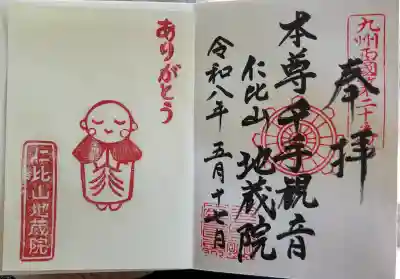 奉拝
本尊千手観音
仁比山 地蔵院
令和八年 五月十七日
ありがとう
仁比山地蔵院